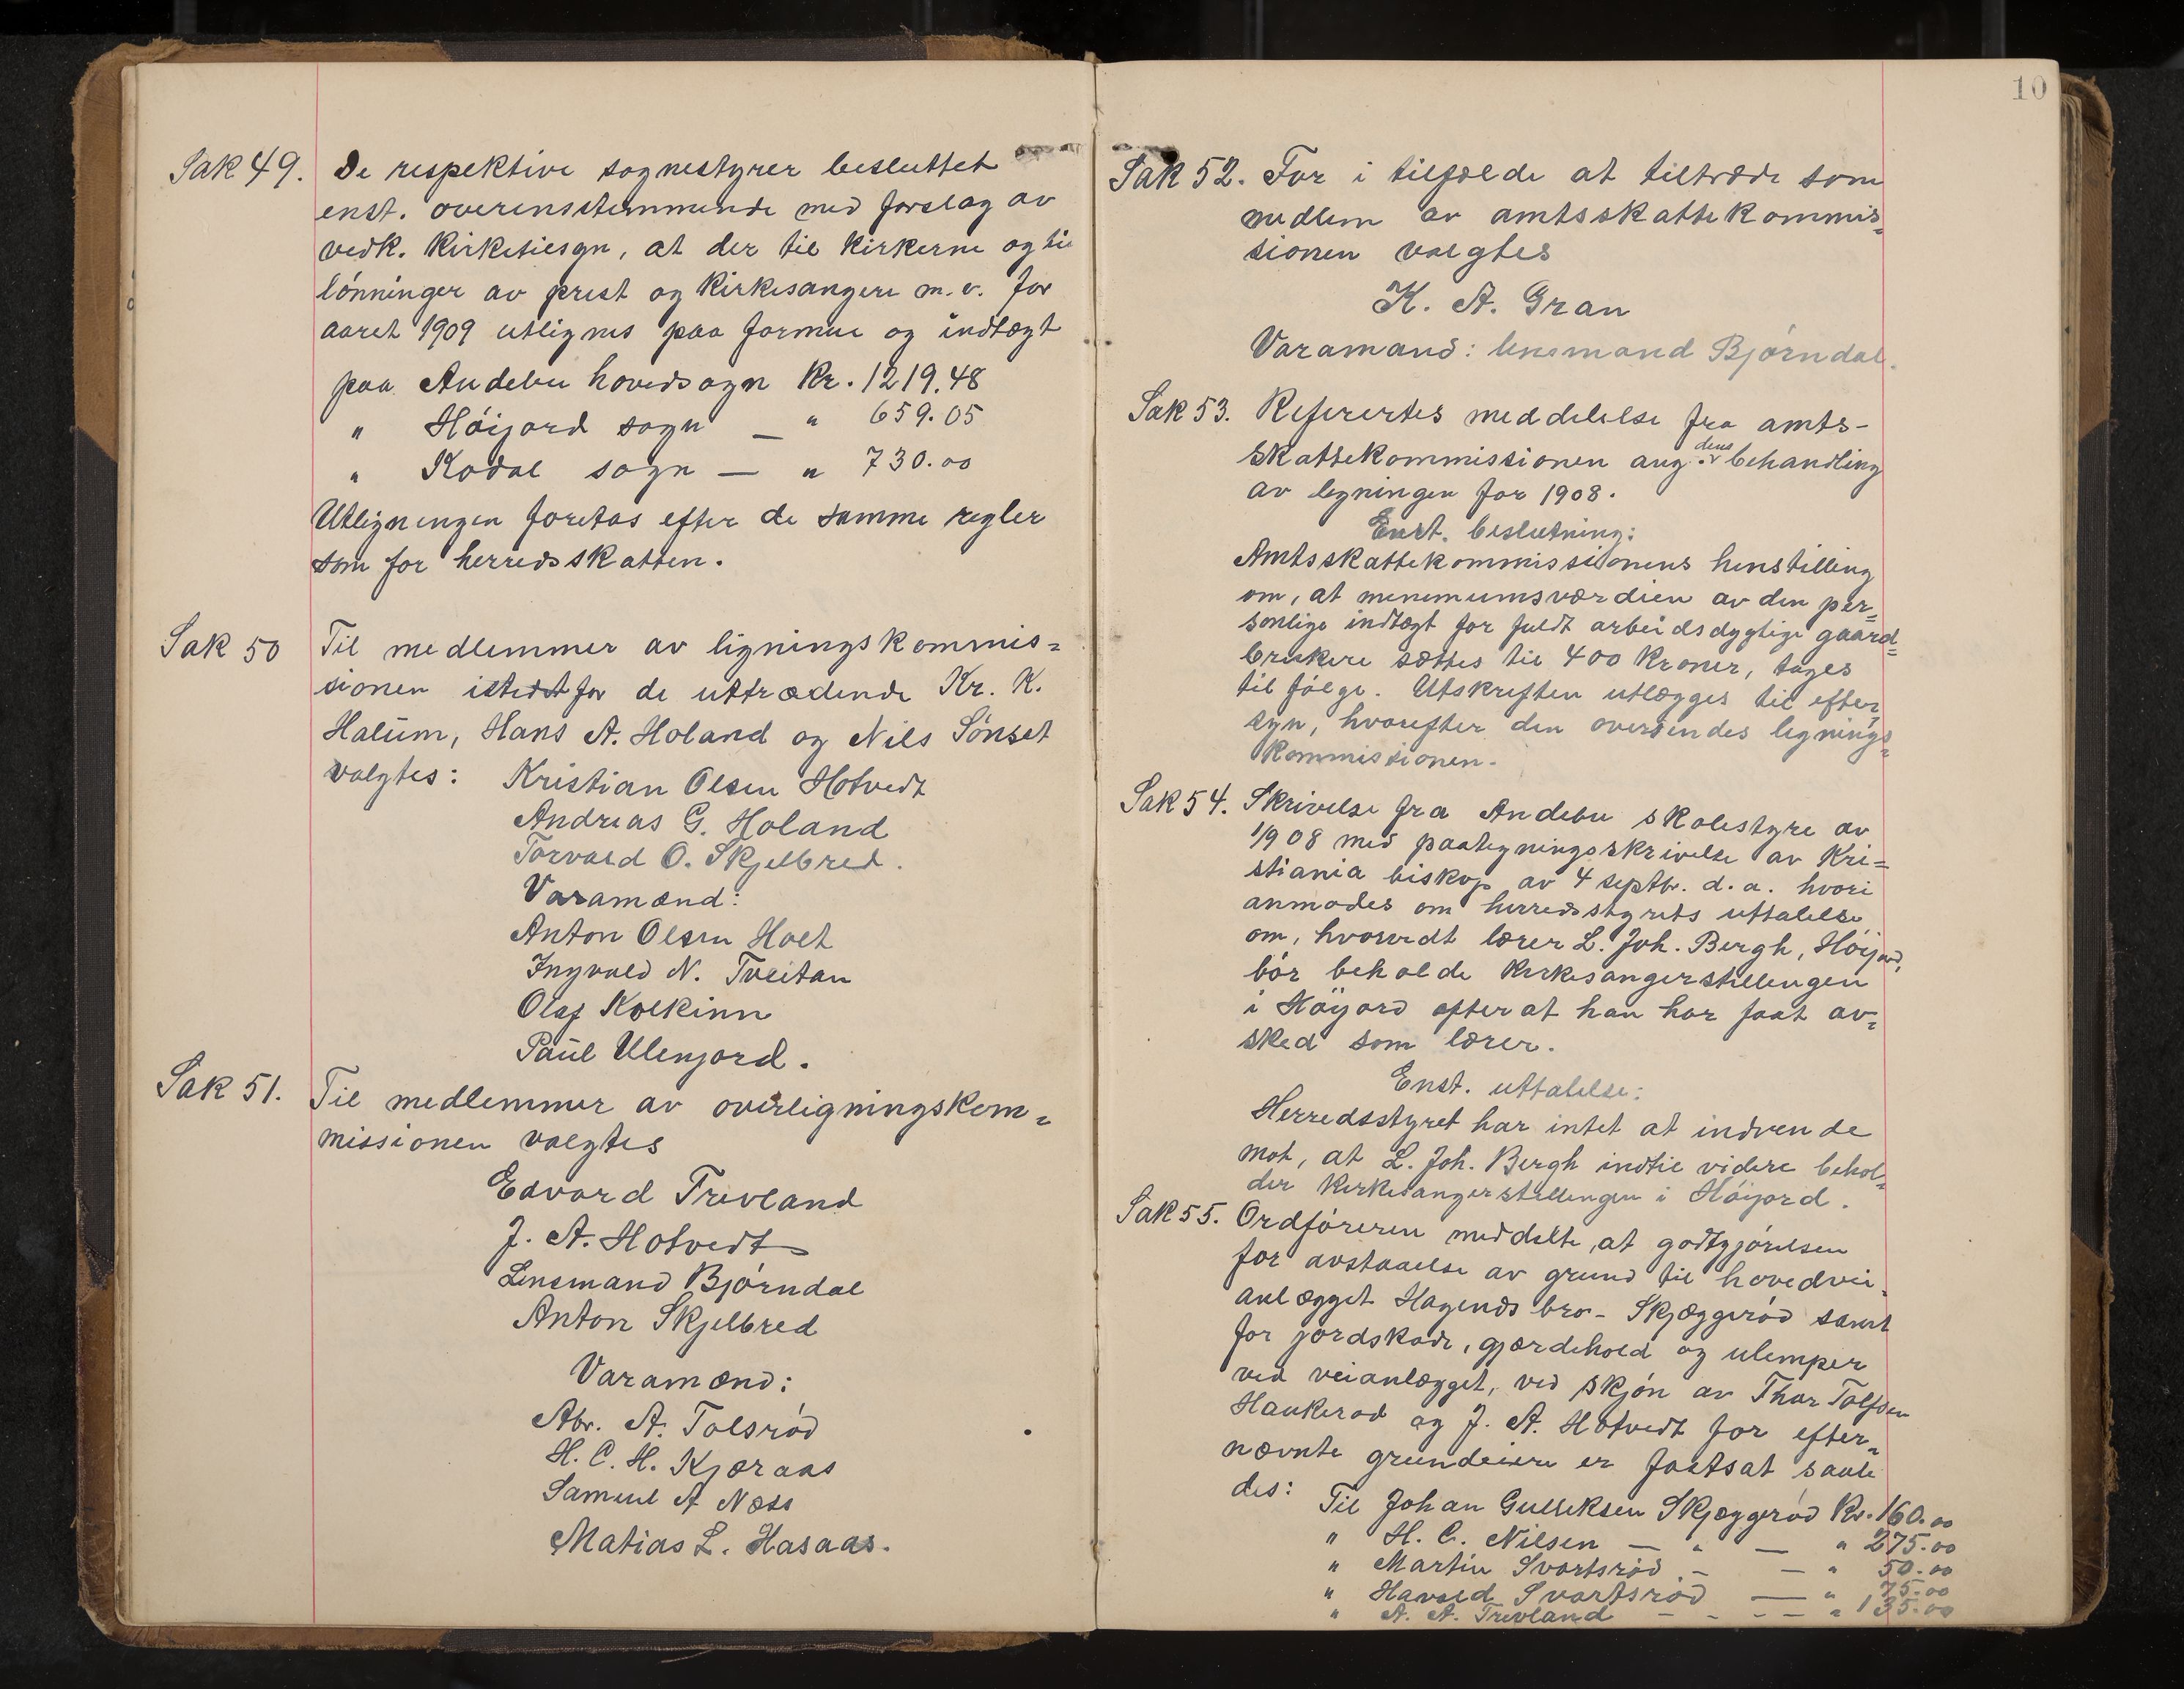 Sak 49. De respektive sognestyrer besluttet
enst. overensstemmende med forslag av
vedk. kirketilsyn, at der til kirkerne og til
lønninger av prest og kirkesangere m.v. for
aaret 1909 utlignes paa formue og indtægt
paa Andebu hovedsogn Kr. 1219.48
" Høijord sogn — " 659.05
" Kodal sogn — " 730.00
Utligningen foretas efter de samme regler
som for herredsskatten.
Sak 50 Til medlemmer av ligningskommis=
sionen istedetfor de uttrædende Kr. K.
Halum, Hans A. Holand og Nils Sønset
valgtes: Kristian Olsen Hotvedt
Andreas G. Holand
Torvald O. Skjelbred.
Varamænd:
Anton Olsen Holt
Ingvald N. Tveitan
Olaf Kolkinn
Paul Ulenjord.
Sak 51. Til medlemmer av overligningskom=
missionen valgtes
Edvard Trevland
J. A. Hotvedt
Lensmand Bjørndal
Anton Skjelbred
Varamænd:
Abr. A. Tolsrød
H. C. H. Kjæraas
Samuel A Næss
Matias L. Hasaas.
10
Sak 52. For i tilfælde at tiltræde som
medlem av amtsskattekommis=
sionen valgtes
K. A. Gran
Varamand: lensmand Bjørndal.
Sak 53. Refertes meddelelse fra amts-
skattekommissionen ang. dens behandling
av ligningen for 1908.
Enst. beslutning:
Amtsskattekommissionens henstilling
om, at menemumsværdien av den per=
sonlige indtægt for fuldt arbeidsdygtige gaard=
brukere sættes til 400 kroner, tages
til følge. Utskriften utlægges til efter=
syn, hvorefter den oversendes lignings=
kommissionen.
Sak 54. Skrivelse fra Andebu skolestyre av
1/9 08 med paategningsskrivelse av Kri=
stiania biskop av 4 septbr. d. a. hvori
anmodes om herredsstyrets uttalelse
om, hvorvidt lærer L. Joh. Bergh, Høijord,
bør beholde kirkesangerstillingen
i Høijord efter at han har faat av=
sked som lærer.
Enst. uttalelse:
Herredsstyret har intet at indvende
mot, at L. Joh. Bergh indtil videre behol=
der kirkesangerstillingen i Høijord.
Sak 55. Ordføreren meddelte, at godtgjørelsen
for avstaaelse av grund til hovedvei=
anlægget Hagends bro - Skjæggerød samt
for jordskade, gjærdehold og ulemper
ved veianlægget, ved skjøn av Thor Tolfsen
Haukerød og J. A. Hotvedt for efter=
nævnte grundeiere er fastsat saale
des: Til Johan Gulliksen Skjæggerød Kr. 160.00
" H. C. Nilsen — " — " 275.00
" Martin Svartsrød - — " 50.00
" Harald Svartsrød — " 75.00
" A. A. Trevland - - - — " 135.00